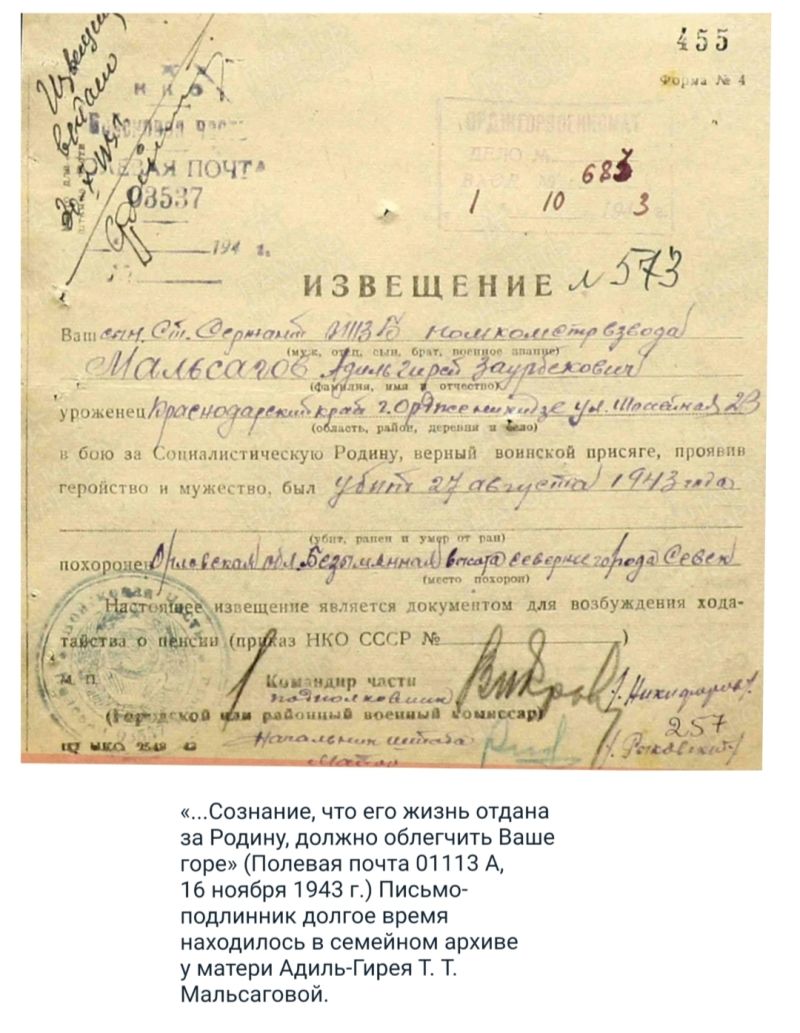 455
Форма № 4
Извещение
НКО
ПОЧТА
03537
ОРДЖГОРВОЕНКОМАТ
ДЕЛО №
1 10 3
194 г.
ИЗВЕЩЕНИЕ N 573
Ваш сын, Ст. Сержант
(муж, отец, сын, брат, военное звание)
Мальсагов Адиль Гирей Заурбекович
(фамилия, имя и отчество)
уроженец Краснодарский край г. Орджоникидзе ул. Шоссейная 23
(область, район, деревня и село)
в бою за Социалистическую Родину, верный воинской присяге, проявив
геройство и мужество, был убит 27 августа 1943 года
(убит, ранен и умер от ран)
похоронен Орловская обл. Безымянная высота севернее города Севск
(место похорон)
Настоящее извещение является документом для возбуждения хода-
тайства о пенсии (приказ НКО СССР № )
М. П. Командир части
подполковник /Никифоров/
(Городской или районный военный комиссар)
257
Начальник штаба
Майор
«...Сознание, что его жизнь отдана
за Родину, должно облегчить Ваше
горе» (Полевая почта 01113 А,
16 ноября 1943 г.) Письмо-
подлинник долгое время
находилось в семейном архиве
у матери Адиль-Гирея Т. Т.
Мальсаговой.